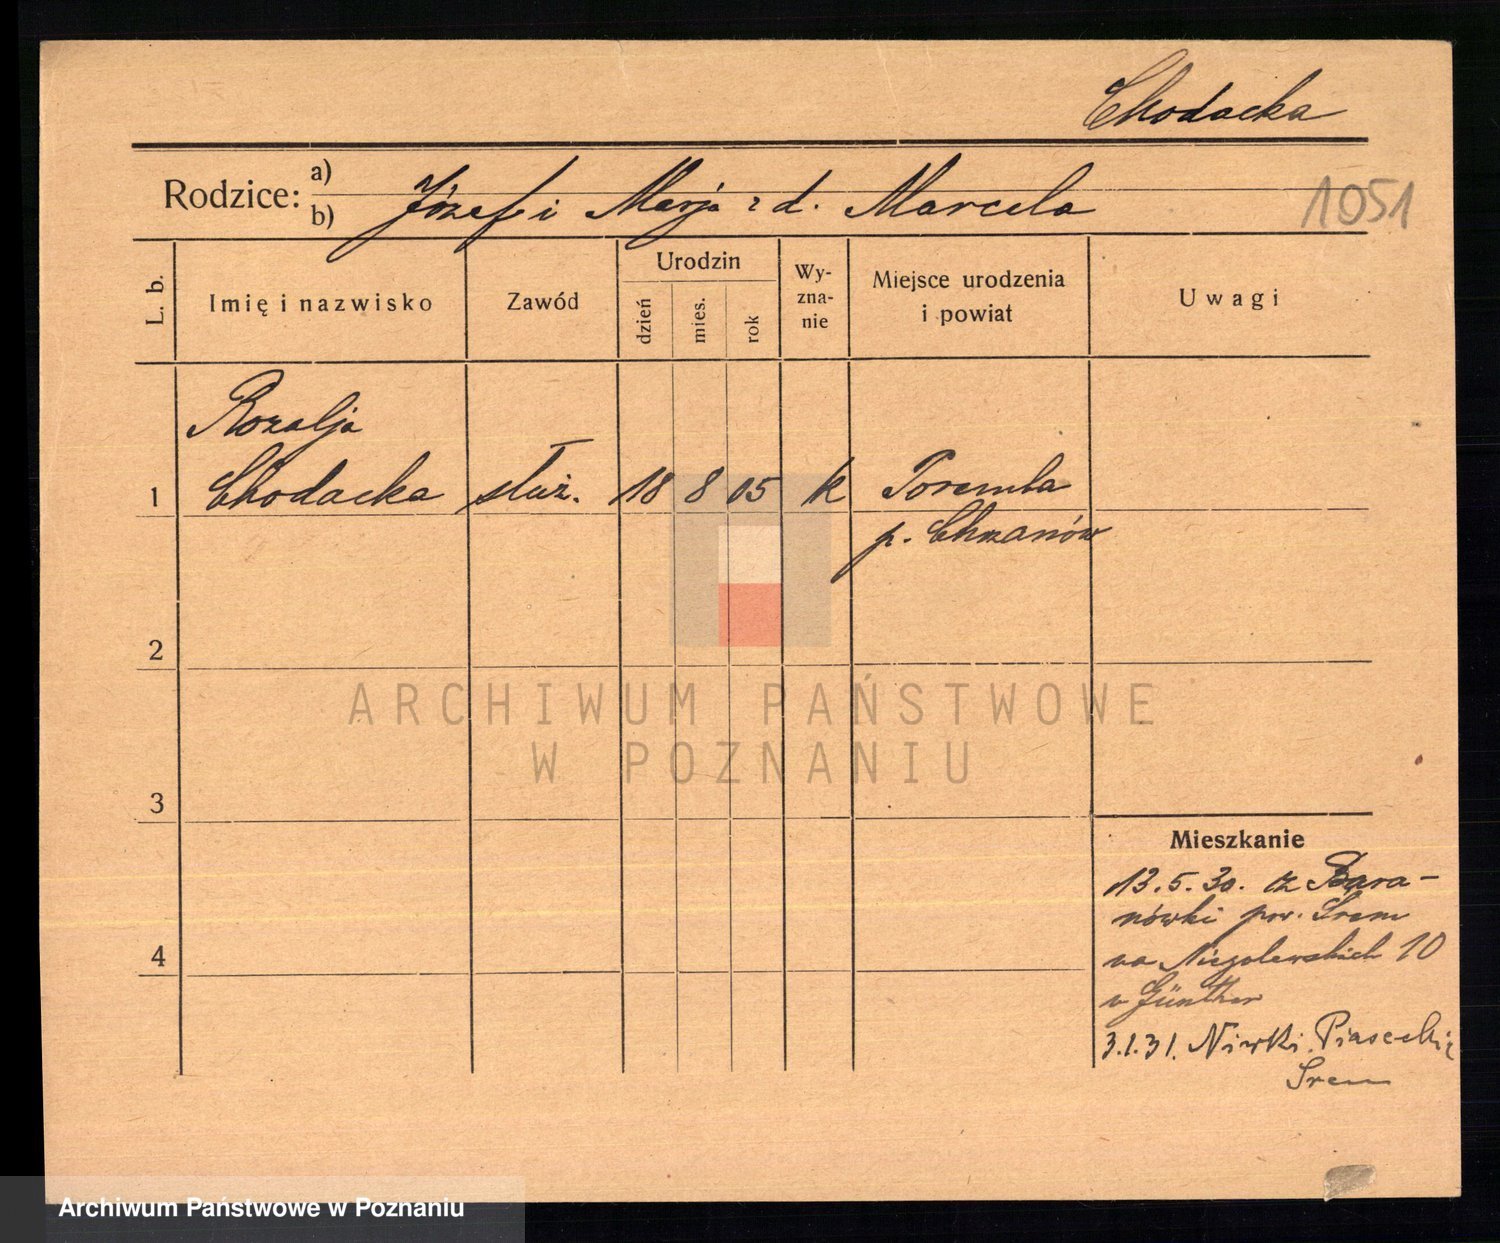 Chodacka
Rodzice: a)
b)
Józef i Marja z d. Marcela
1051
L. b.
Imię i nazwisko
Zawód
Urodzin
dzień
mies.
rok
Wy-
zna-
nie
Miejsce urodzenia
i powiat
Uwagi
Rozalja
1 Chodacka służ. 18 8 05 k Poremba
p. Chrzanów
2
3
4
Mieszkanie
13.5.30. z Bara-
nówki pow. Śrem
na Niegolewskich 10
u Günther
3.1.31. Niwki Piaseckie
Śrem
ARCHIWUM PAŃSTWOWE
W POZNANIU
Archiwum Państwowe w Poznaniu